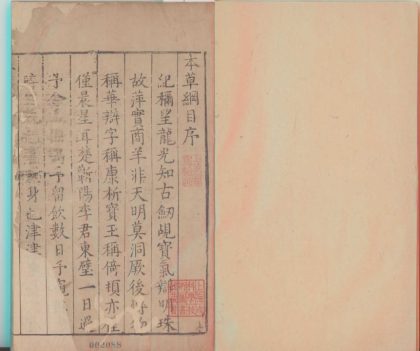 本草綱目序
紀稱望龍光知古劒覘寶氣辯明珠
故萍實商羊非天明莫洞厥後
稱華辯字稱康析寶玉稱倚頓亦
僅晨星耳楚蘄陽李君東璧一日過
予 予留飲數日予
身也津津
004088